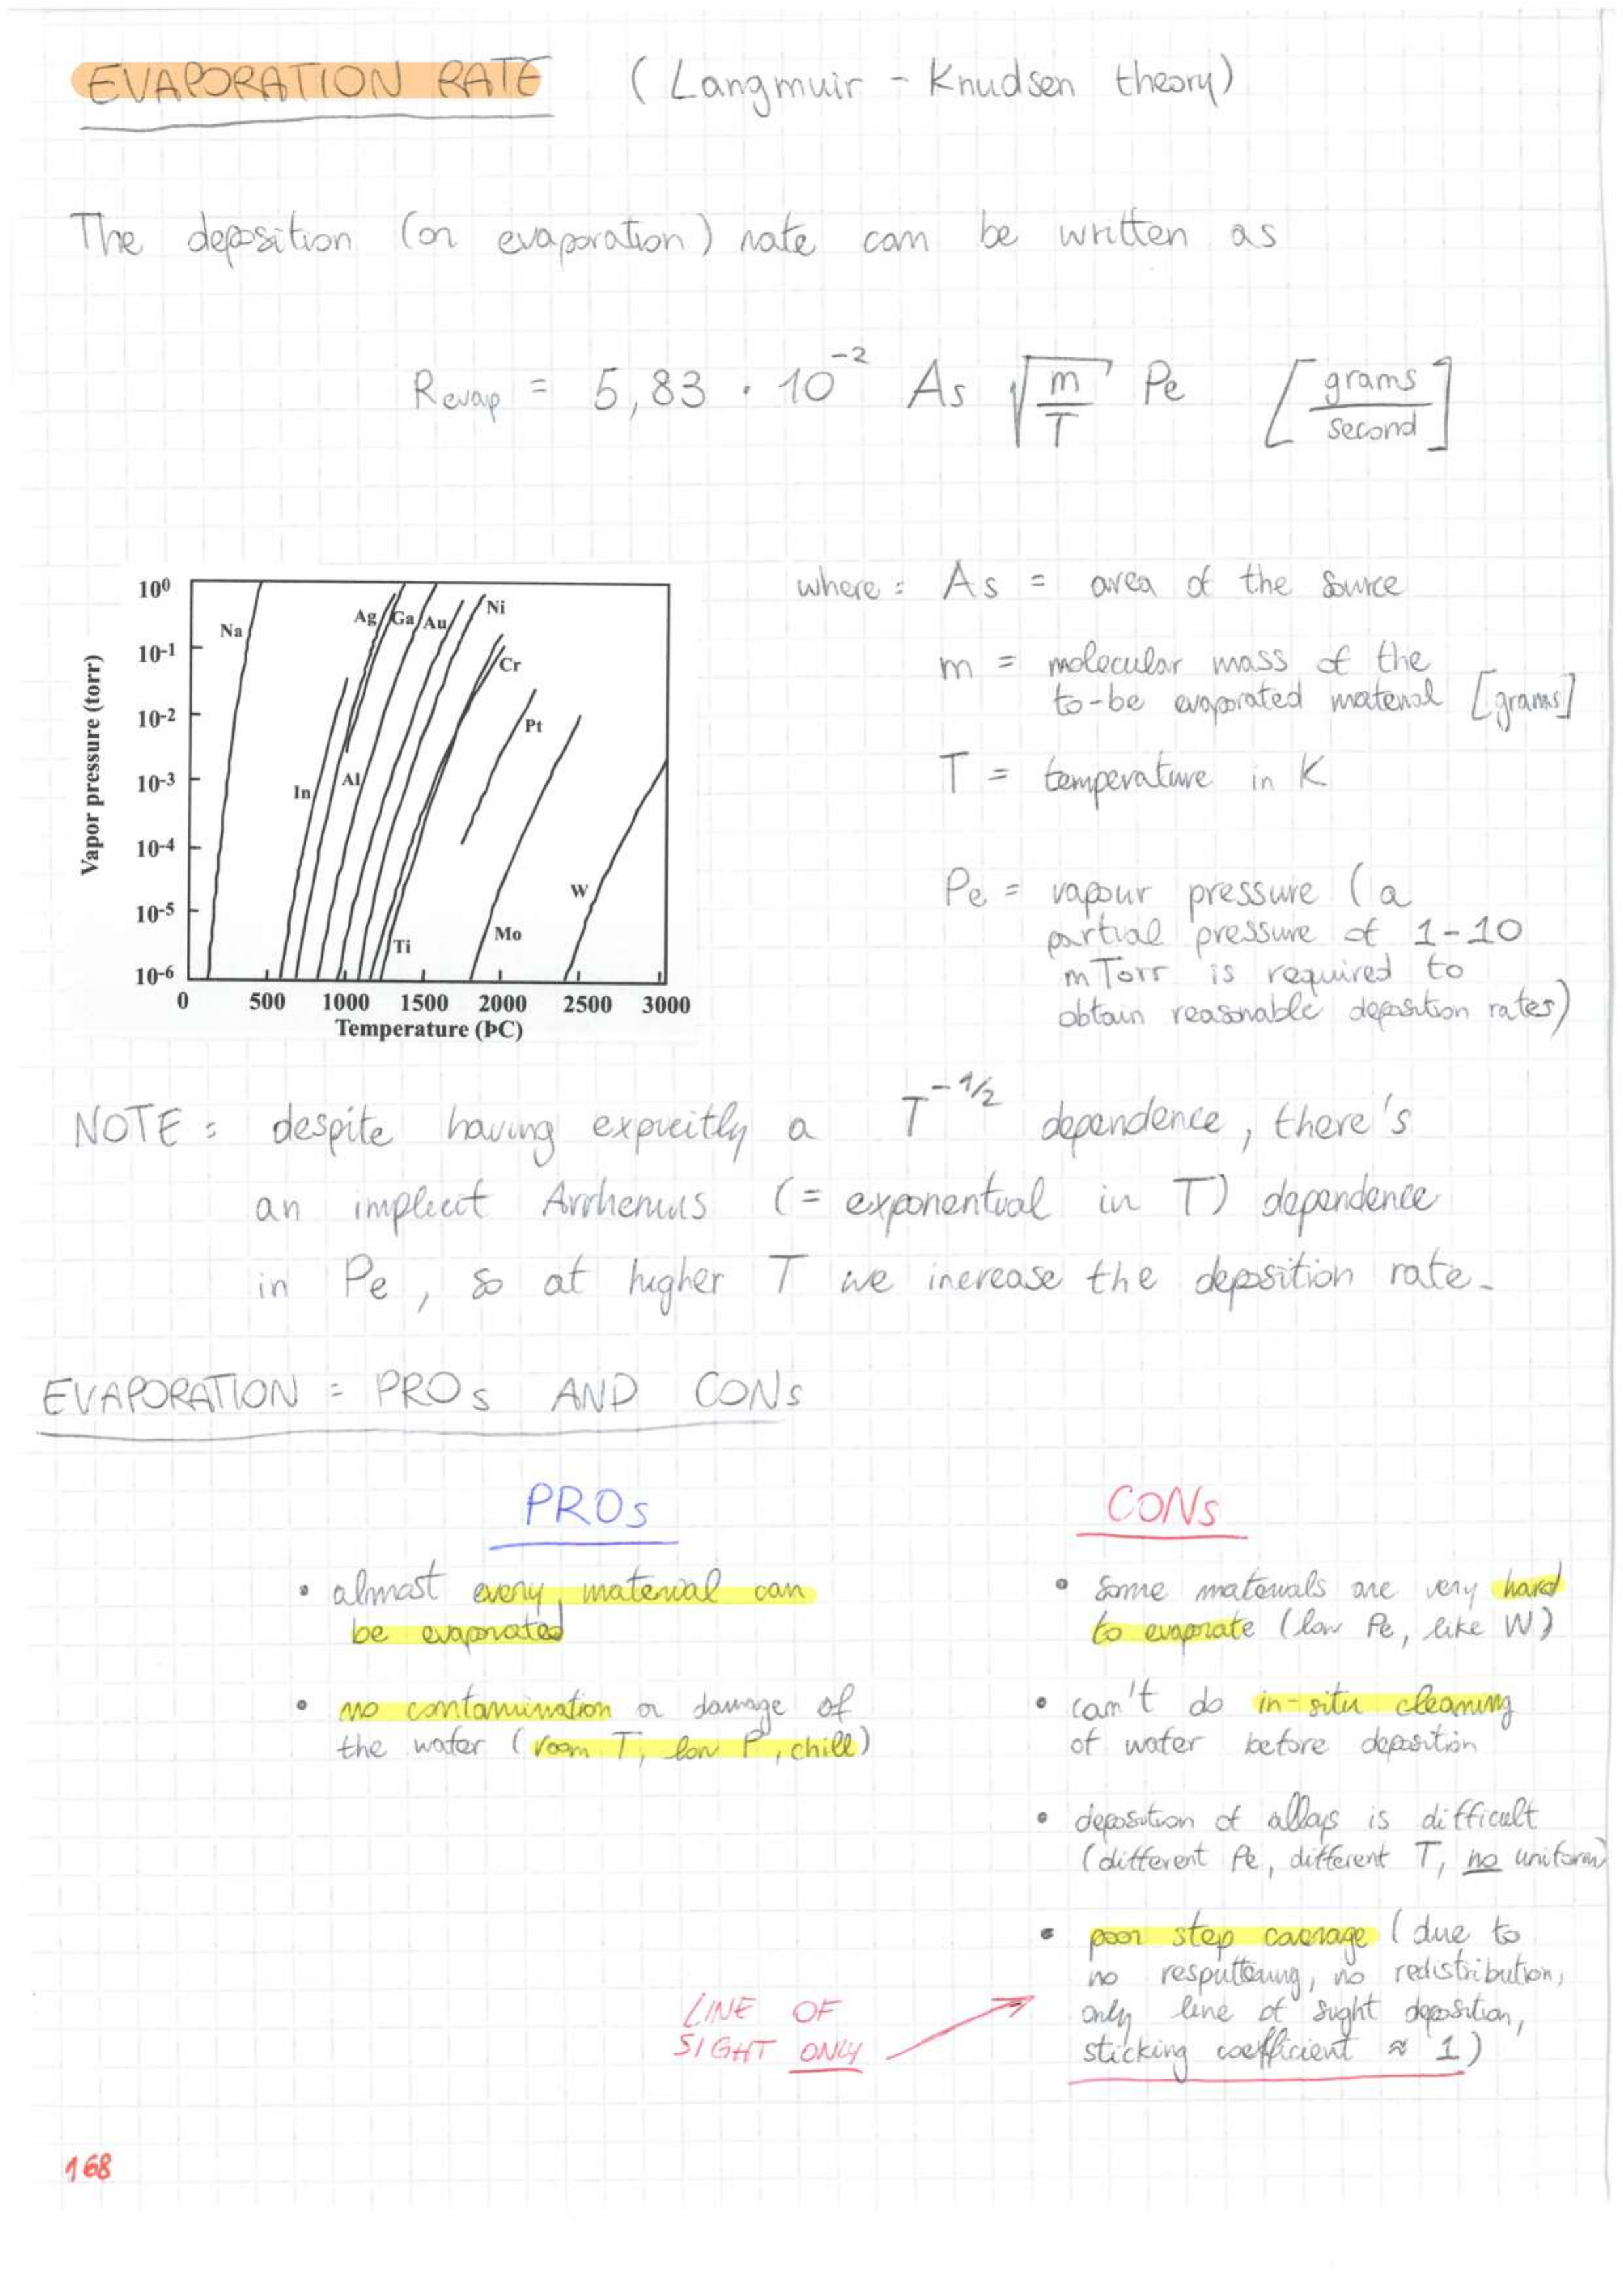 EVAPORATION RATE (Langmuir - Knudsen theory)
The deposition (or evaporation) rate can be written as
Revap = 5,83 · 10^-2 As √(m/T) Pe [grams/second]
10^0
10^-1
10^-2
10^-3
10^-4
10^-5
10^-6
Vapor pressure (torr)
Na
Ag
Ga
Au
Ni
Cr
Pt
In
Al
W
Ti
Mo
0 500 1000 1500 2000 2500 3000
Temperature (ÞC)
where: As = area of the source
m = molecular mass of the
to-be evaporated material [grams]
T = temperature in K
Pe = vapour pressure (a
partial pressure of 1-10
mTorr is required to
obtain reasonable deposition rates)
NOTE: despite having explicitly a T^-1/2 dependence, there's
an implicit Arrhenius (= exponential in T) dependence
in Pe, so at higher T we increase the deposition rate.
EVAPORATION = PROs AND CONs
PROs
• almost every material can
be evaporated
• no contamination or damage of
the wafer (room T, low P, chill)
CONs
• some materials are very hard
to evaporate (low Pe, like W)
• can't do in-situ cleaning
of wafer before deposition
• deposition of alloys is difficult
(different Pe, different T, no uniform)
• poor step coverage (due to
no resputtering, no redistribution,
only line of sight deposition,
sticking coefficient ≈ 1)
LINE OF
SIGHT ONLY
168